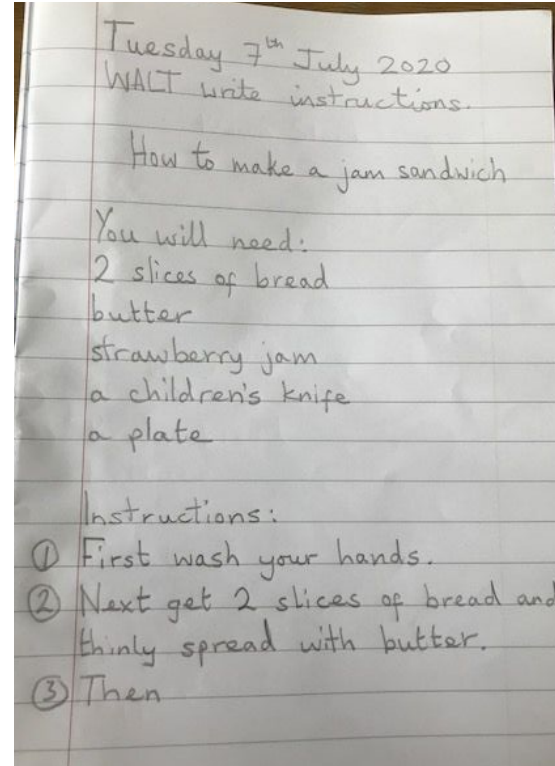 Tuesday 7th July 2020
WALT write instructions.
How to make a jam sandwich
You will need:
2 slices of bread
butter
strawberry jam
a children's knife
a plate
Instructions:
① First wash your hands.
② Next get 2 slices of bread and
thinly spread with butter.
③ Then